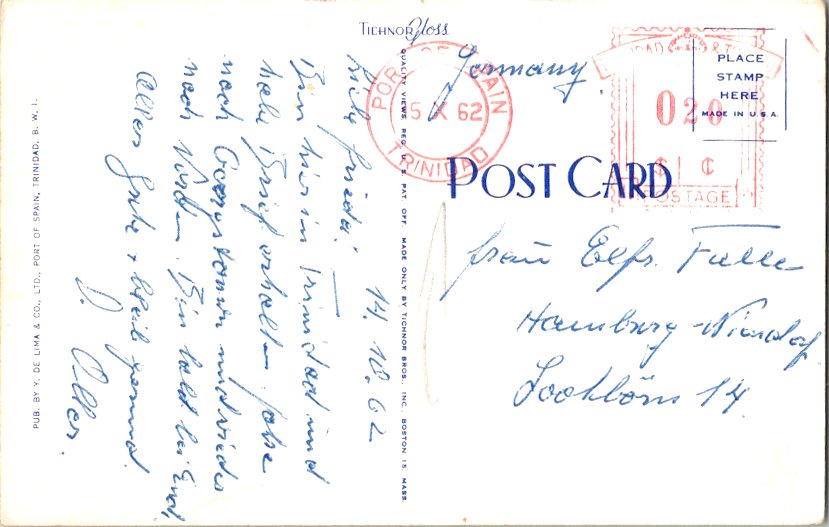 TICHNOR Gloss
PUB. BY Y. DE LIMA & CO., LTD., PORT OF SPAIN, TRINIDAD, B. W. I.
14.10.62
Bin hier in Trinidad und
habe Brief erhalten. Fahre
nach Georgetown und wieder
nach Norden. Bin bald bei Euch,
Alles Gute + bleib gesund
QUALITY VIEWS REG. U. S. PAT. OFF. MADE ONLY BY TICHNOR BROS., INC. BOSTON 15, MASS.
Germany
PORT OF SPAIN
15 X 62
TRINIDAD
020
$ ¢
POSTAGE
PLACE
STAMP
HERE
MADE IN U.S.A.
POST CARD
Frau Elfr.
Hamburg-Niendorf
14